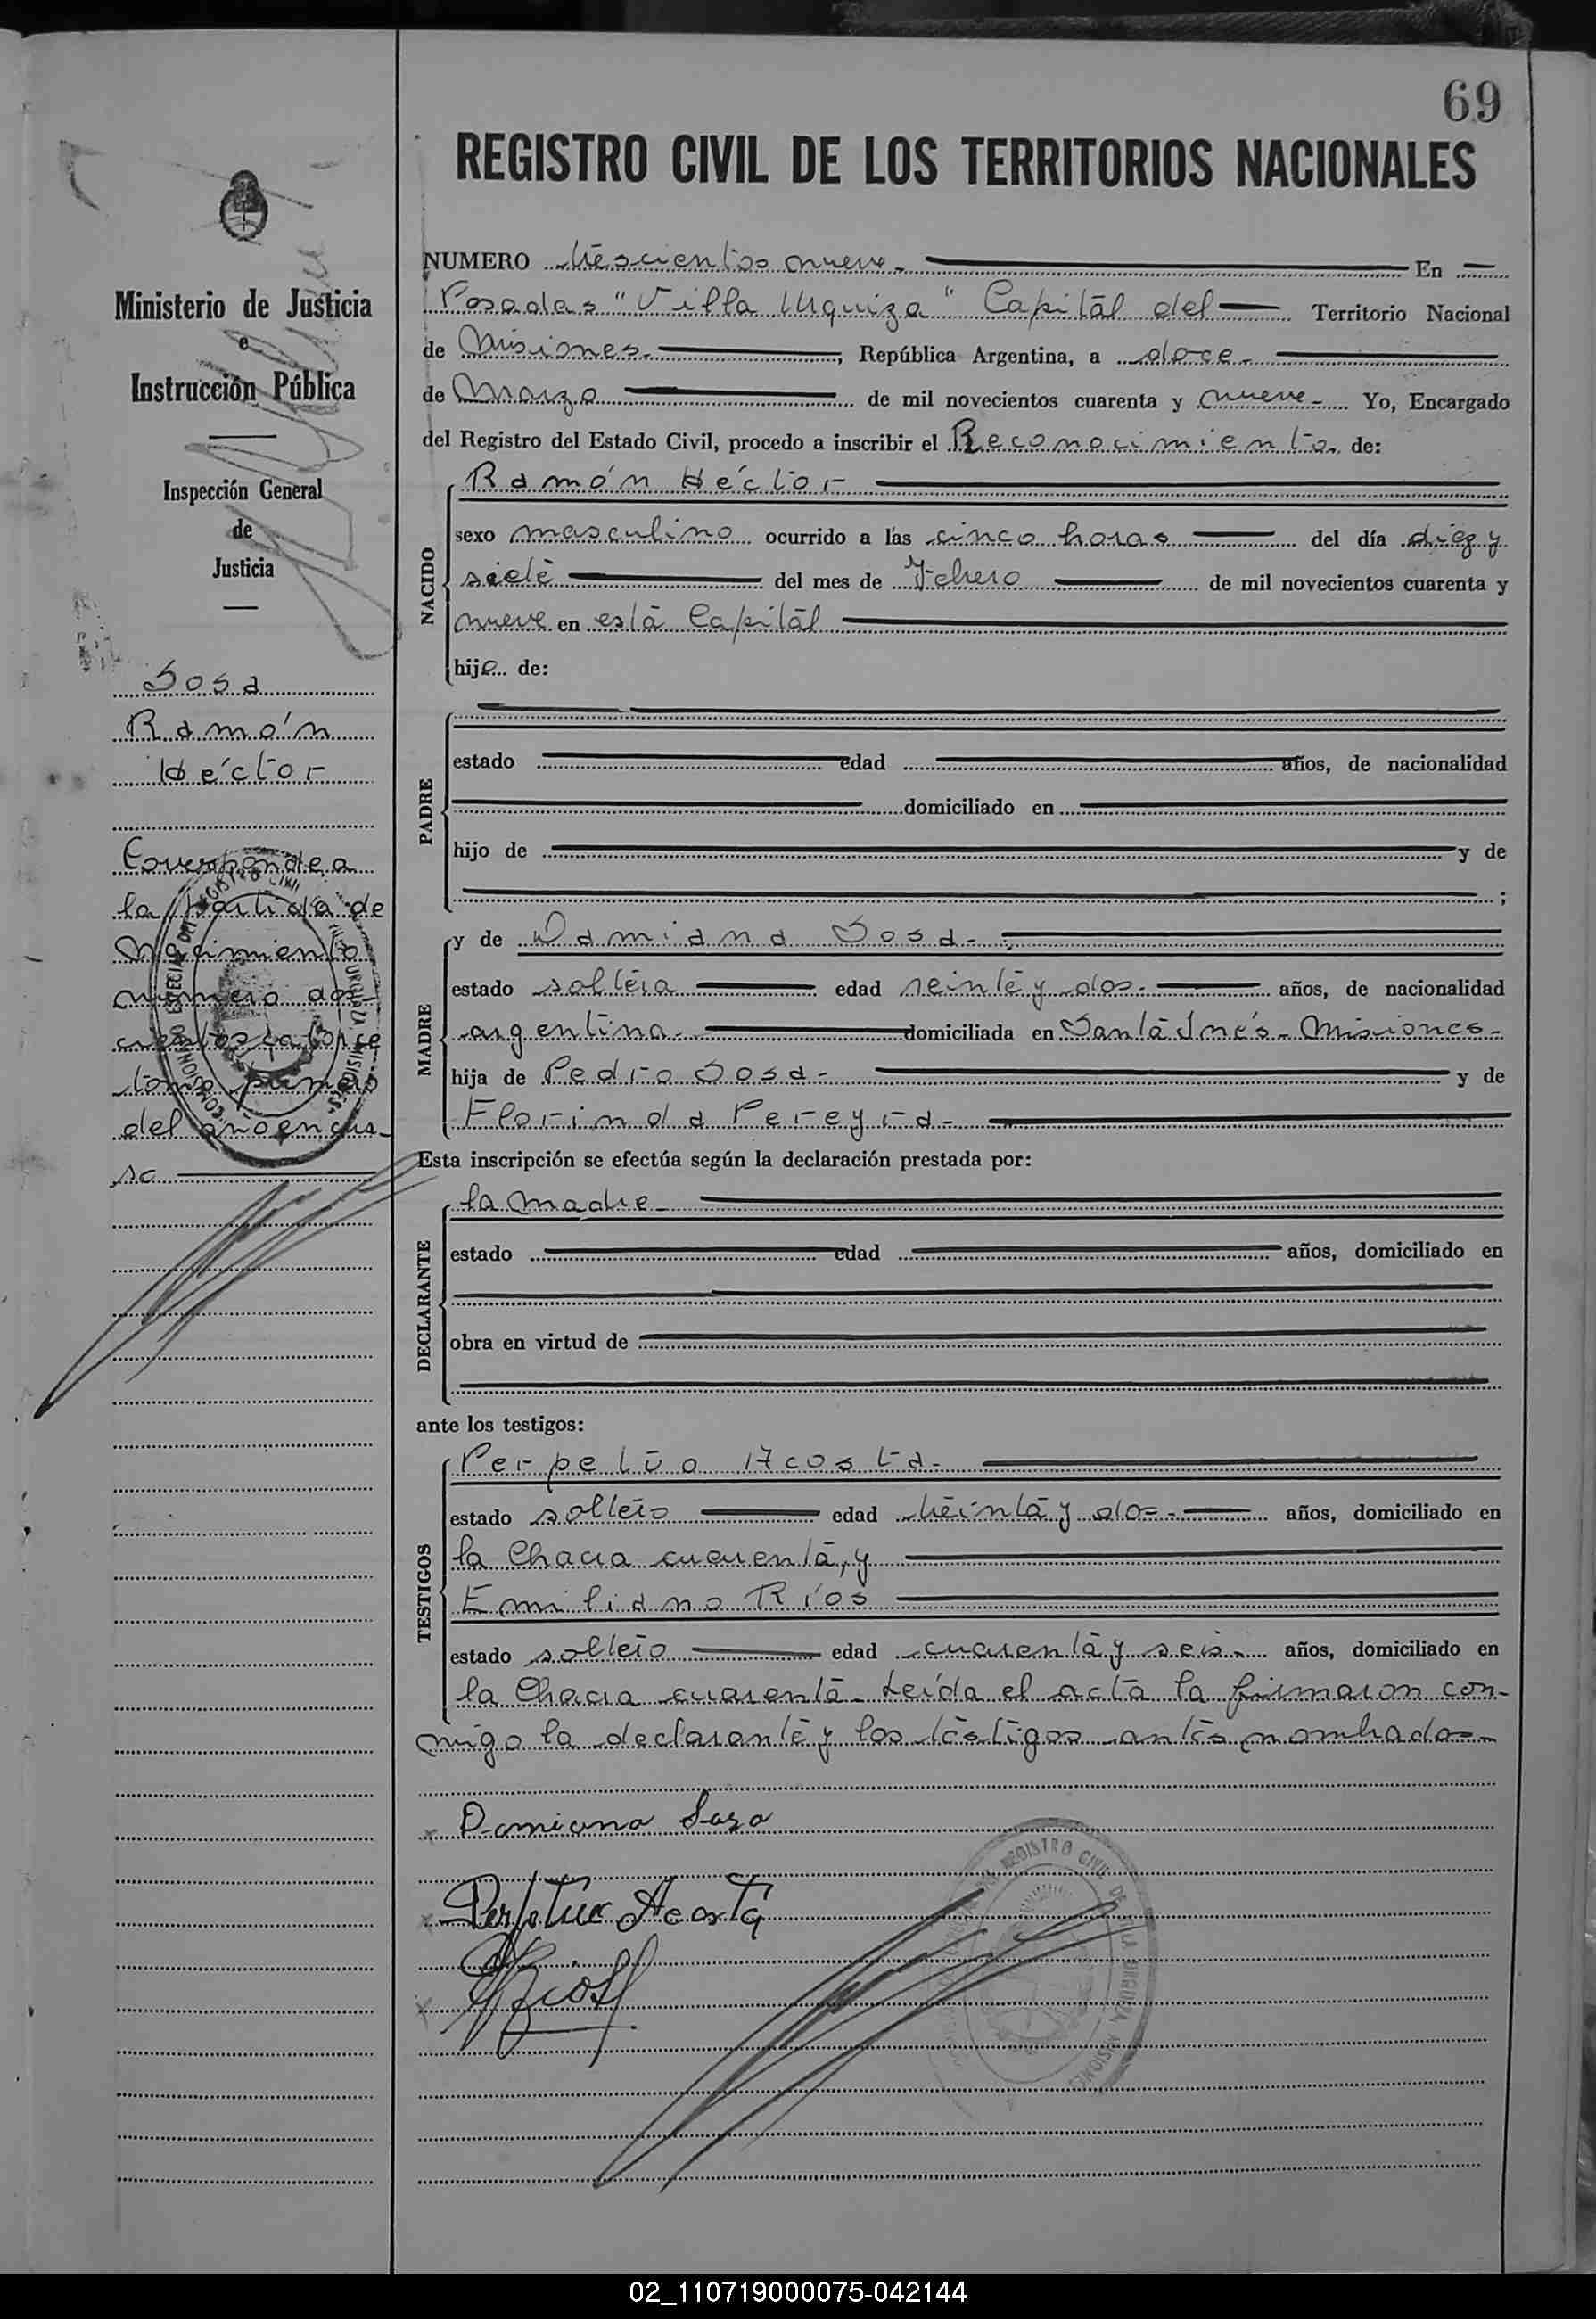 69
REGISTRO CIVIL DE LOS TERRITORIOS NACIONALES
Ministerio de Justicia
e
Instrucción Pública
Inspección General
de
Justicia
Sosa
Ramón
Héctor
Corresponde a
la partida de
Nacimiento
número dos-
cientos catorce
tomo primero
del año en cur-
so
NUMERO trescientos nueve.- En
Posadas "Villa Urquiza" Capital del Territorio Nacional
de Misiones.- , República Argentina, a doce.-
de Marzo de mil novecientos cuarenta y nueve.- Yo, Encargado
del Registro del Estado Civil, procedo a inscribir el Reconocimiento. de:
NACIDO
Ramón Héctor
sexo masculino ocurrido a las cinco horas del día diez y
siete del mes de Febrero de mil novecientos cuarenta y
nueve en esta Capital
hijo de:
PADRE
estado edad años, de nacionalidad
domiciliado en
hijo de y de
;
MADRE
y de Damiana Sosa.-
estado soltera edad veinte y dos.- años, de nacionalidad
argentina.- domiciliada en Santa Inés.- Misiones.-
hija de Pedro Sosa.- y de
Florinda Pereyra.-
Esta inscripción se efectúa según la declaración prestada por:
DECLARANTE
la madre.-
estado edad años, domiciliado en
obra en virtud de
ante los testigos:
TESTIGOS
Perpetuo Acosta.-
estado soltero edad treinta y dos.- años, domiciliado en
la Chacra cuarenta, y
Emiliano Ríos
estado soltero edad cuarenta y seis.- años, domiciliado en
la Chacra cuarenta.- Leída el acta la firmaron con-
migo la declarante y los testigos antes nombrados.-
Damiana Sosa
Perpetuo Acosta
Rios
REGISTRO CIVIL DE VILLA URQUIZA MISIONES
02_110719000075-042144